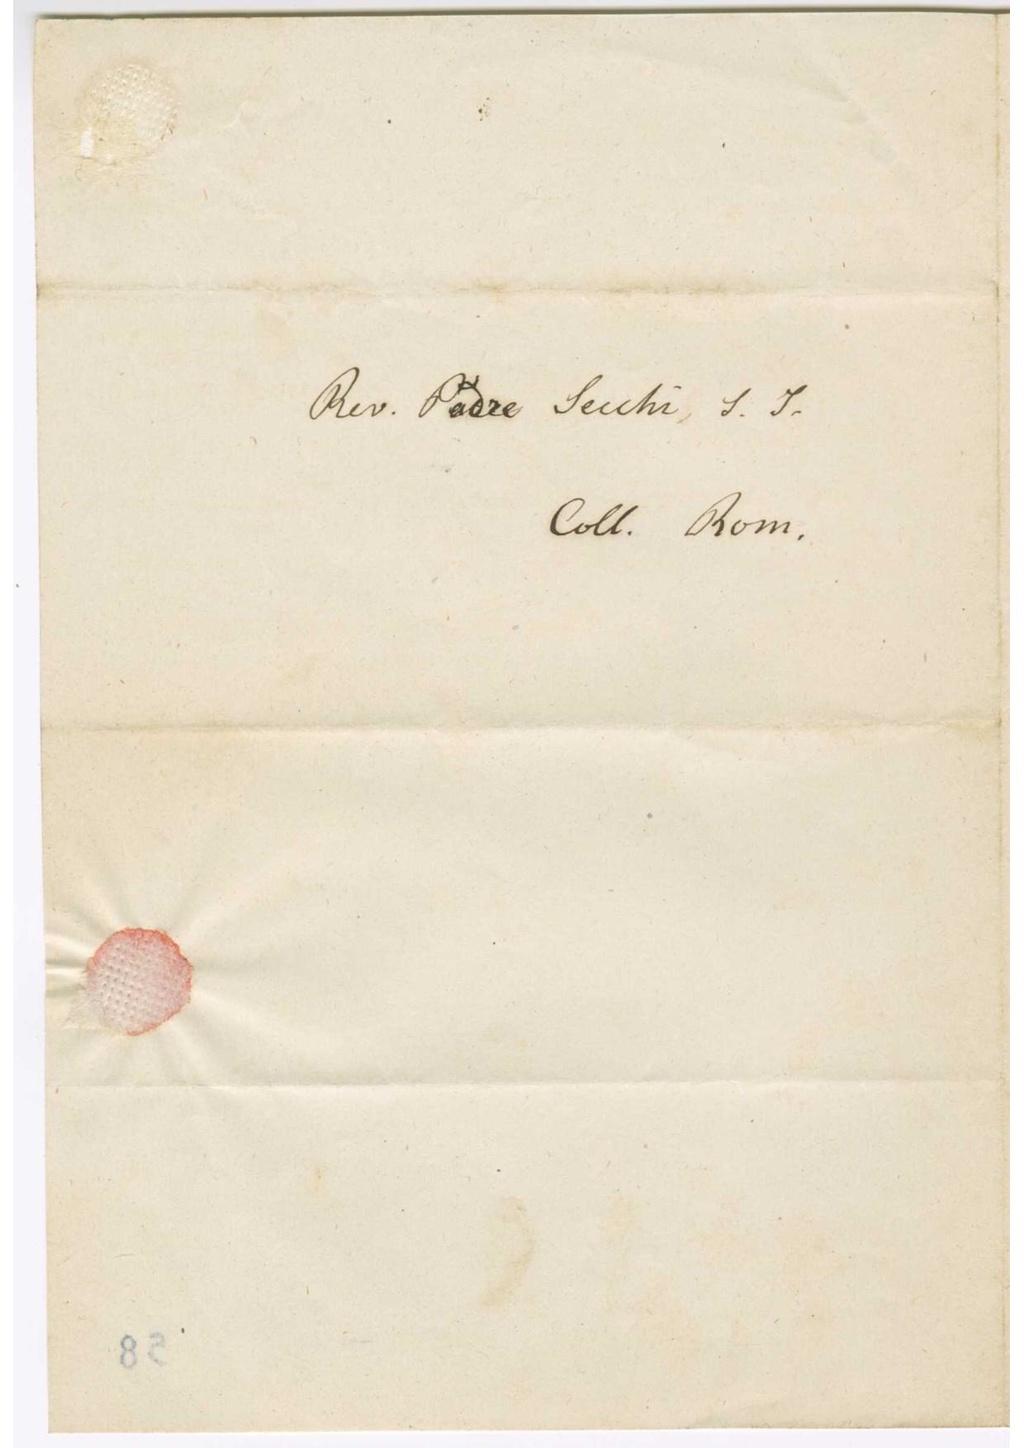 Rev. Padre Secchi, S. J.
Coll. Rom.
58